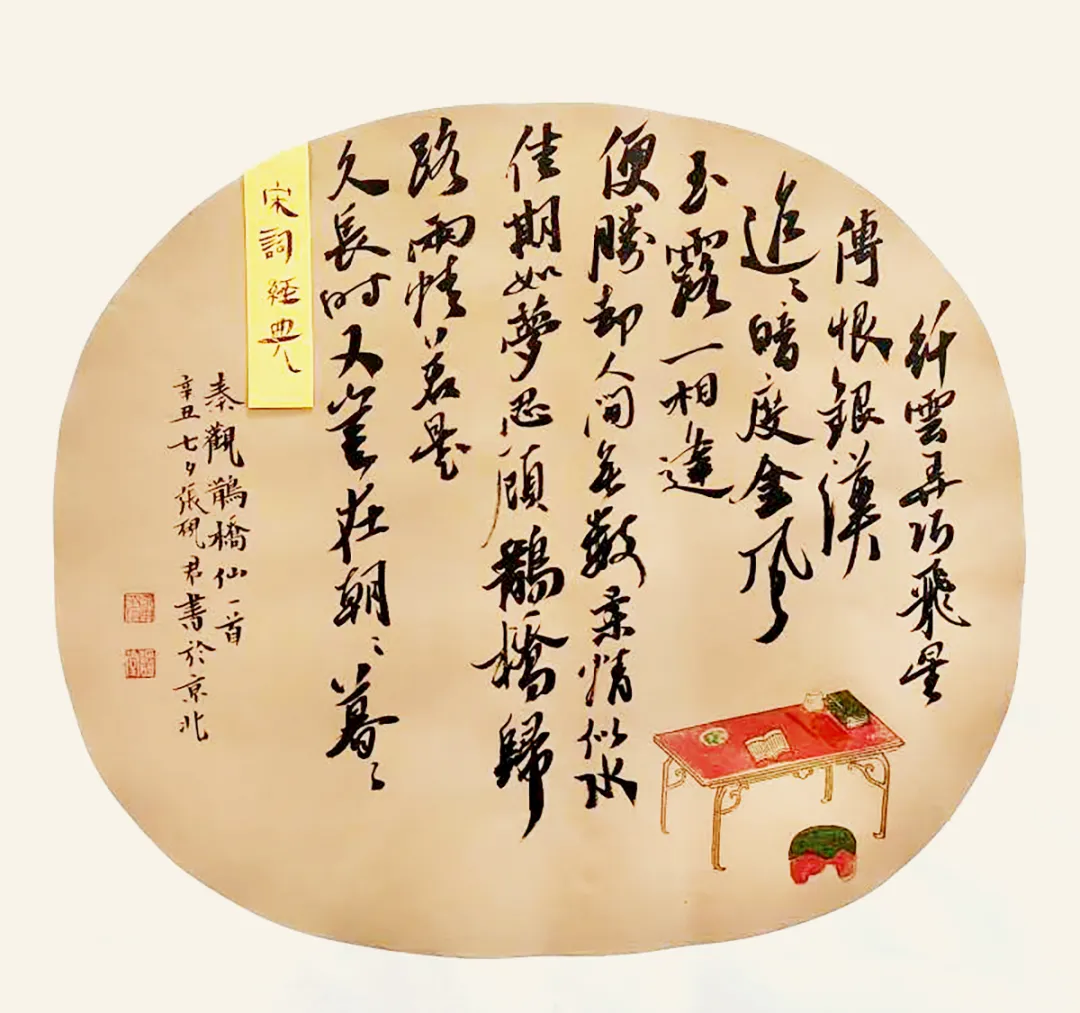 纤雲弄巧飛星
傳恨銀漢
迢〻暗度金風
玉露一相逢
便勝却人間無數柔情似水
佳期如夢忍顧鵲橋歸
路兩情若是
久長时又豈在朝〻暮〻
宋詞經典
秦觀鵲橋仙一首
辛丑七夕張硯君書於京北